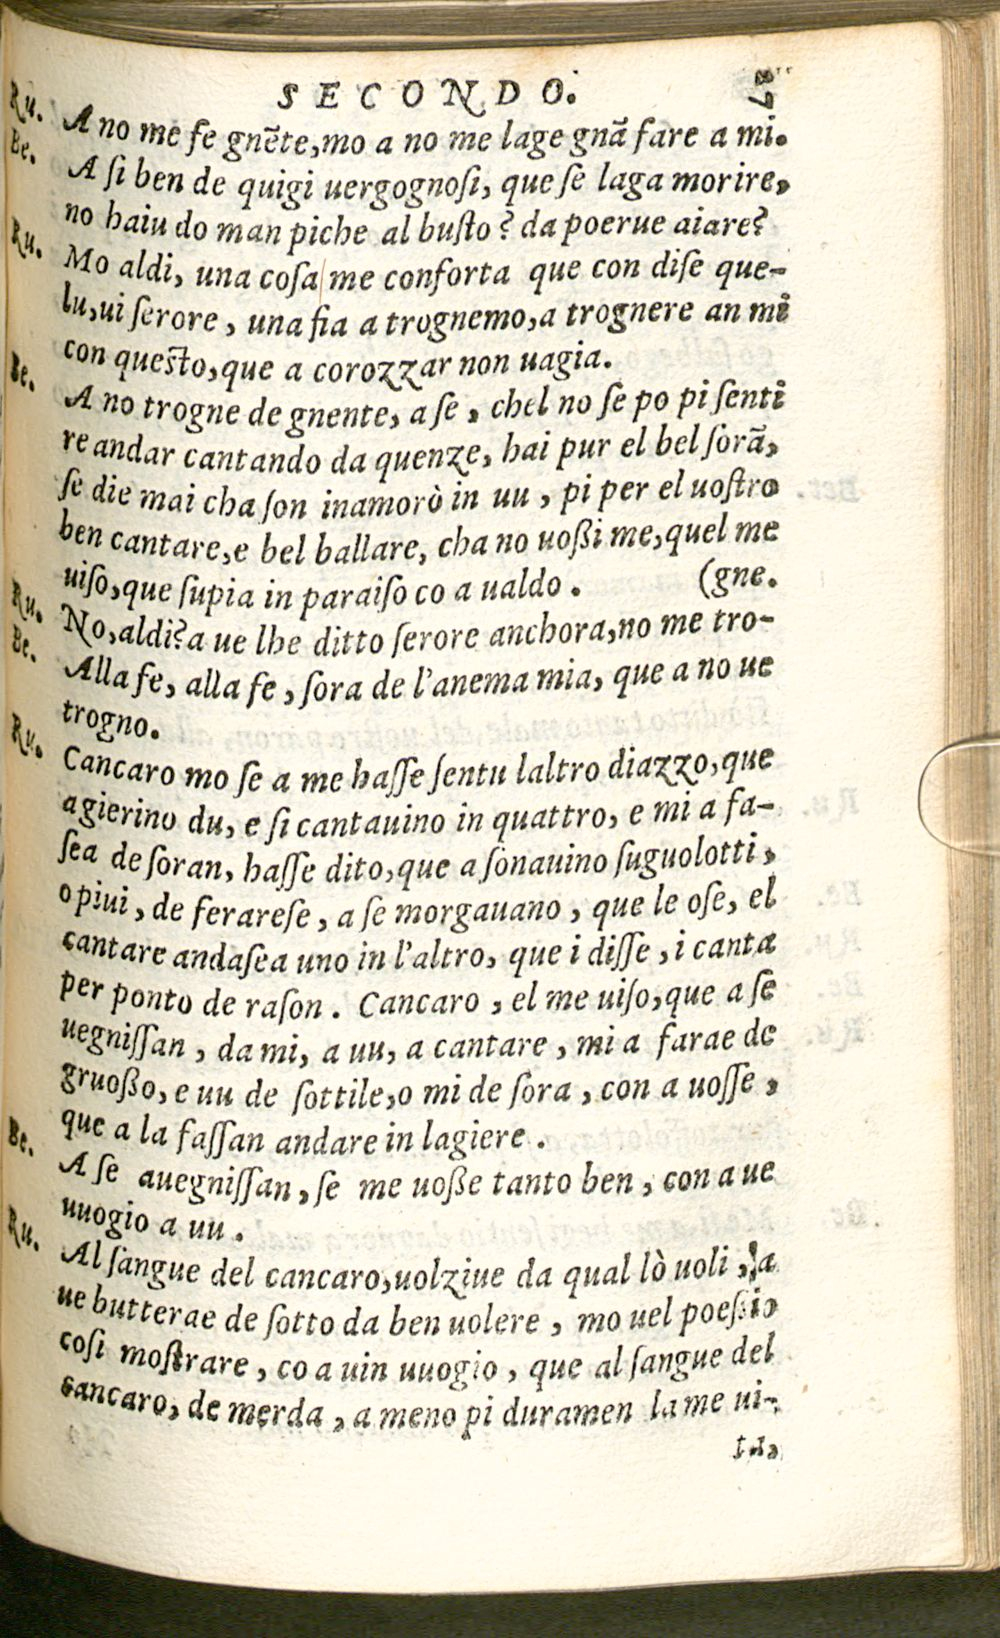 SECONDO. 37
Ru. A no me fe gnẽte, mo a no me lage gnã fare a mi.
Be. A ſi ben de quigi uergognoſi, que ſe laga morire,
no haiu do man piche al buſto? da poerue aiare?
Ru. Mo aldi, una coſa me conforta que con diſe que-
lu, ui ſerore, una fia a trognemo, a trognere an mi
con queſto, que a corozzar non uagia.
Be. A no trogne de gnente, a ſe, chel no ſe po pi ſenti
re andar cantando da quenze, hai pur el bel ſorã,
ſe die mai cha ſon inamorò in uu, pi per el uoſtro
ben cantare, e bel ballare, cha no uoßi me, quel me
uiſo, que ſupia in paraiſo co a ualdo. (gne.
Ru. No, aldi? a ue lhe ditto ſerore anchora, no me tro-
Be. Alla fe, alla fe, ſora de l'anema mia, que a no ue
trogno.
Ru. Cancaro mo ſe a me haſſe ſentu laltro diazzo, que
agierino du, e ſi cantauino in quattro, e mi a fa-
ſea de ſoran, haſſe dito, que a ſonauino ſuguolotti,
o piui, de ferareſe, a ſe morgauano, que le oſe, el
cantare andaſea uno in l'altro, que i diſſe, i canta
per ponto de raſon. Cancaro, el me uiſo, que a ſe
uegniſſan, da mi, a uu, a cantare, mi a farae de
gruoßo, e uu de ſottile, o mi de ſora, con a uoſſe,
que a la faſſan andare in lagiere.
Be. A ſe auegniſſan, ſe me uoße tanto ben, con a ue
uuogio a uu.
Ru. Al ſangue del cancaro, uolziue da qual lò uoli, ſa
ue butterae de ſotto da ben uolere, mo uel poeßio
coſi moſtrare, co a uin uuogio, que al ſangue del
cancaro, de merda, a meno pi duramen la me ui-